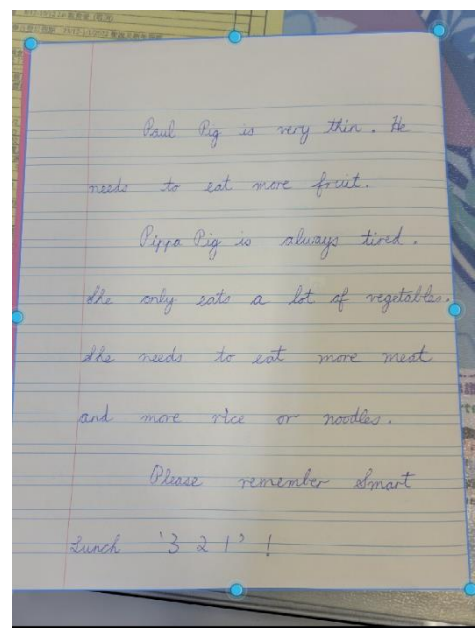 Paul Pig is very thin. He
needs to eat more fruit.
Pippa Pig is always tired.
She only eats a lot of vegetables.
She needs to eat more meat
and more rice or noodles.
Please remember Smart
Lunch '3 2 1' !